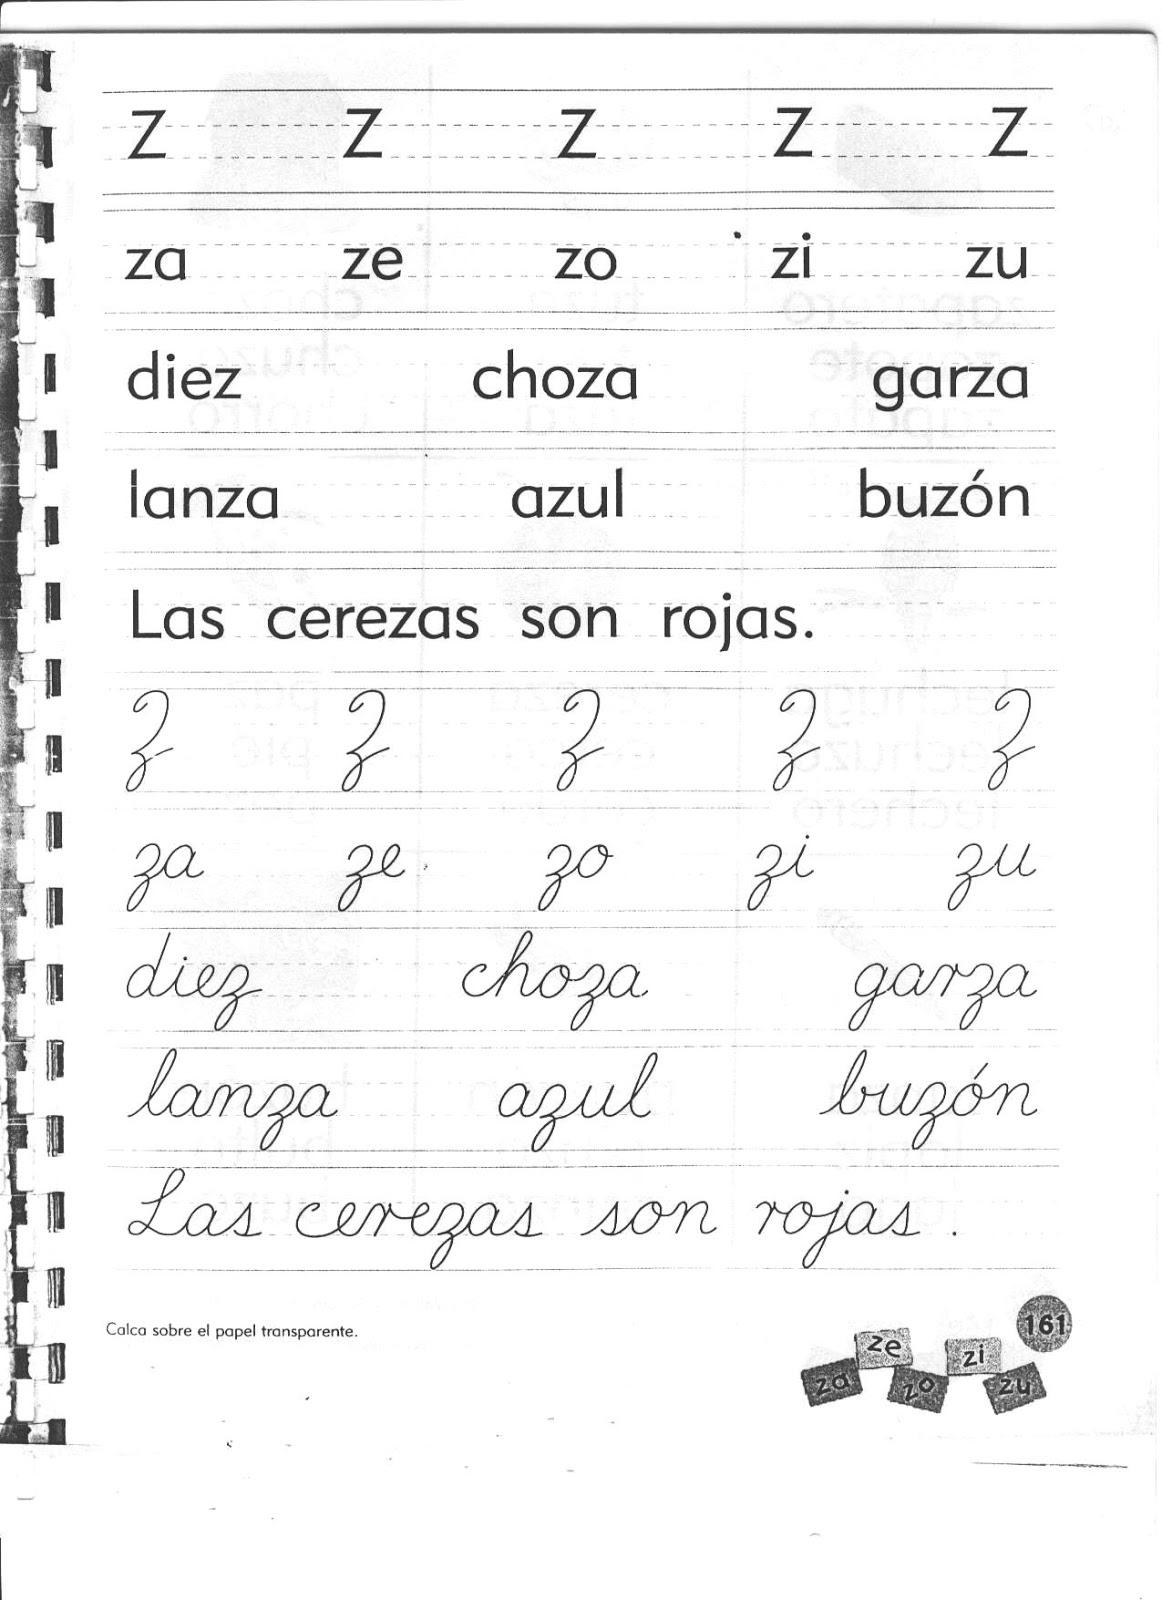 Z Z Z Z Z
za ze zo zi zu
diez choza garza
lanza azul buzón
Las cerezas son rojas.
Z Z Z Z Z
za ze zo zi zu
diez choza garza
lanza azul buzón
Las cerezas son rojas .
Calca sobre el papel transparente.
161
za ze zo zi zu